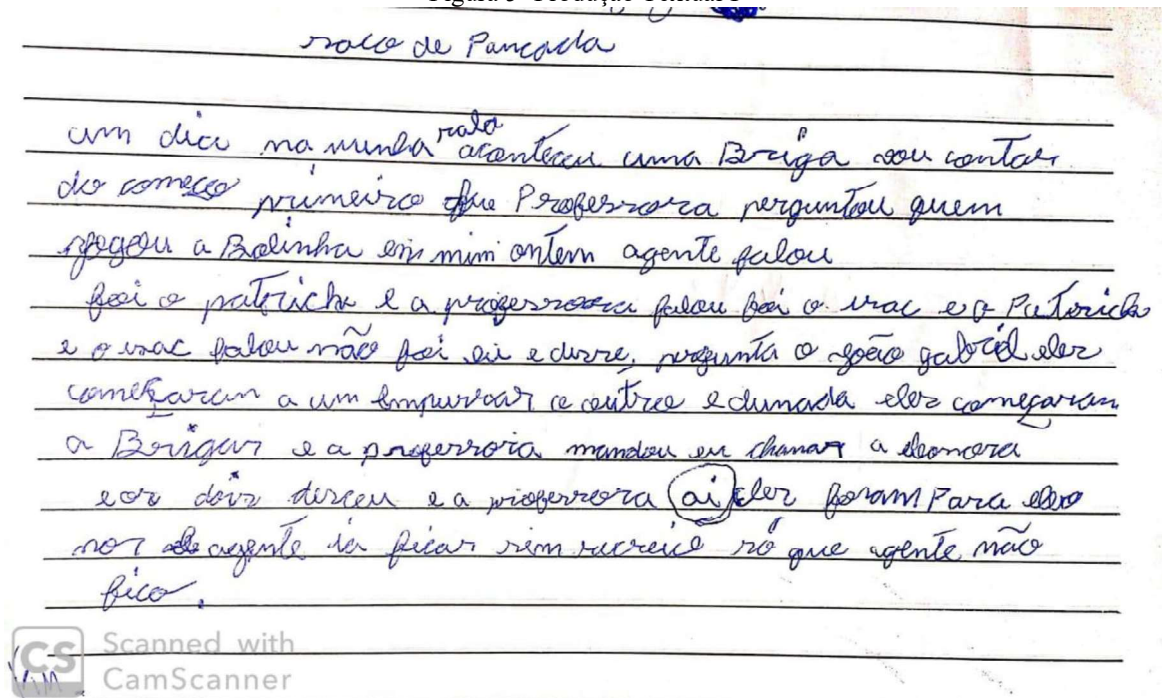 saco de Pancada
um dia na minha sala aconteceu uma Briga vou contar
do começo primeiro Professora perguntou quem
jogou a Bolinha em mim ontem agente falou
foi o patrick e a professora falou foi o isac e o Patrick
e o isac falou não foi eu e disse, pergunta o joão gabriel eles
começaram a um empurrar o outro e dunada eles começaram
a Brigar e a professora mandou eu chamar a eleonora
e os dois desceu e a professora ai eles foram Para
nos agente ia ficar sem recreio só que agente não
fico.
CS Scanned with
CamScanner